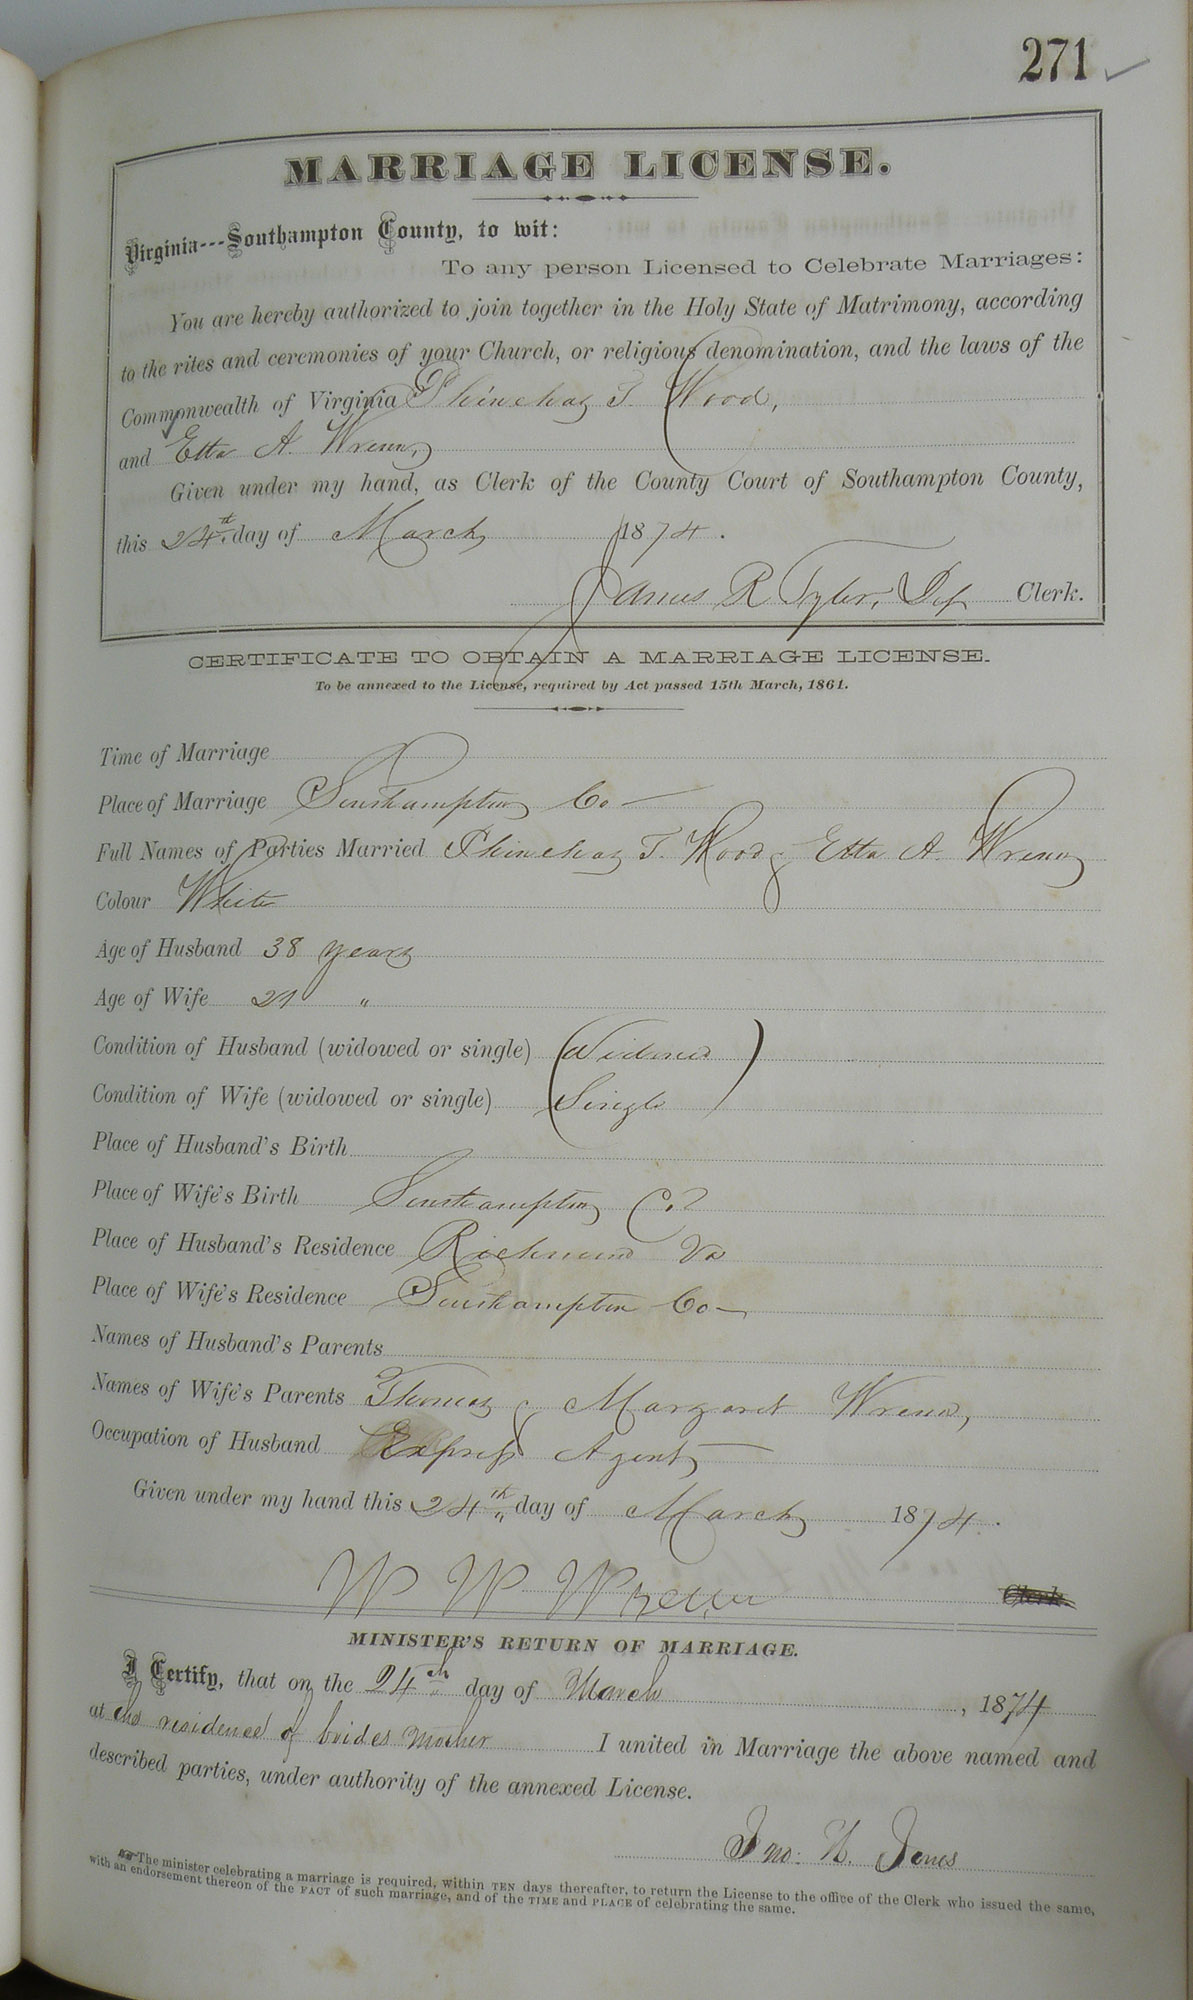 271
MARRIAGE LICENSE.
Virginia---Southampton County, to wit:
To any person Licensed to Celebrate Marriages:
You are hereby authorized to join together in the Holy State of Matrimony, according
to the rites and ceremonies of your Church, or religious denomination, and the laws of the
Commonwealth of Virginia Phinehas T. Wood,
and Etta A. Wrenn,
Given under my hand, as Clerk of the County Court of Southampton County,
this 24th day of March 1874.
James R Tyler, Dep Clerk.
CERTIFICATE TO OBTAIN A MARRIAGE LICENSE.
To be annexed to the License, required by Act passed 15th March, 1861.
Time of Marriage
Place of Marriage Southampton Co
Full Names of Parties Married Phinehas T. Wood & Etta A. Wrenn
Colour White
Age of Husband 38 years
Age of Wife 21 "
Condition of Husband (widowed or single) Widowed
Condition of Wife (widowed or single) Single
Place of Husband's Birth
Place of Wife's Birth Southampton Co
Place of Husband's Residence Richmond Va
Place of Wife's Residence Southampton Co
Names of Husband's Parents
Names of Wife's Parents Thomas & Margaret Wrenn,
Occupation of Husband Express Agent
Given under my hand this 24th day of March 1874.
W W Wrenn Clerk
MINISTER'S RETURN OF MARRIAGE.
I Certify, that on the 24th day of March, 1874
at the residence of brides mother I united in Marriage the above named and
described parties, under authority of the annexed License.
Jno. Jones
The minister celebrating a marriage is required, within TEN days thereafter, to return the License to the office of the Clerk who issued the same,
with an endorsement thereon of the FACT of such marriage, and of the TIME and PLACE of celebrating the same.